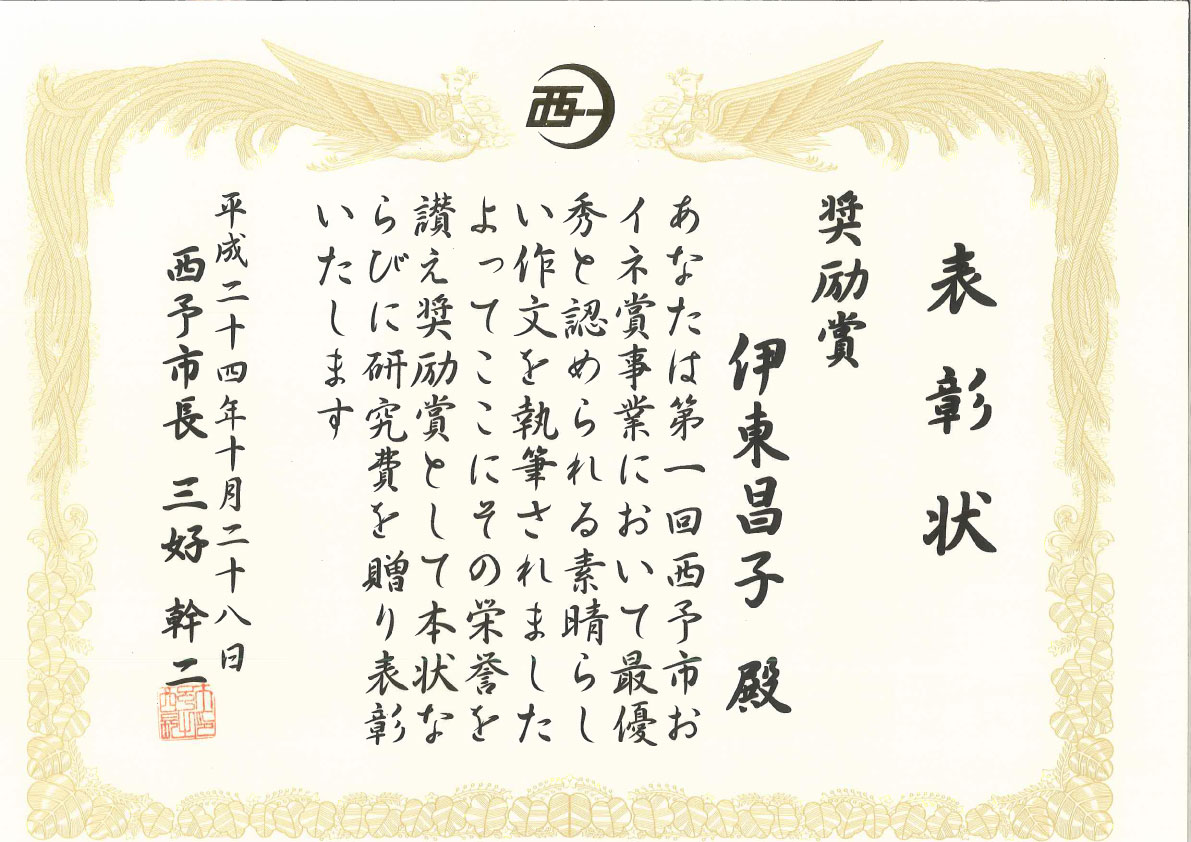 表彰状
奨励賞
伊東昌子 殿
あなたは第一回西予市お
イネ賞事業において最優
秀と認められる素晴らし
い作文を執筆されました
よってここにその栄誉を
讃え奨励賞として本状な
らびに研究費を贈り表彰
いたします
平成二十四年十月二十八日
西予市長 三好幹二